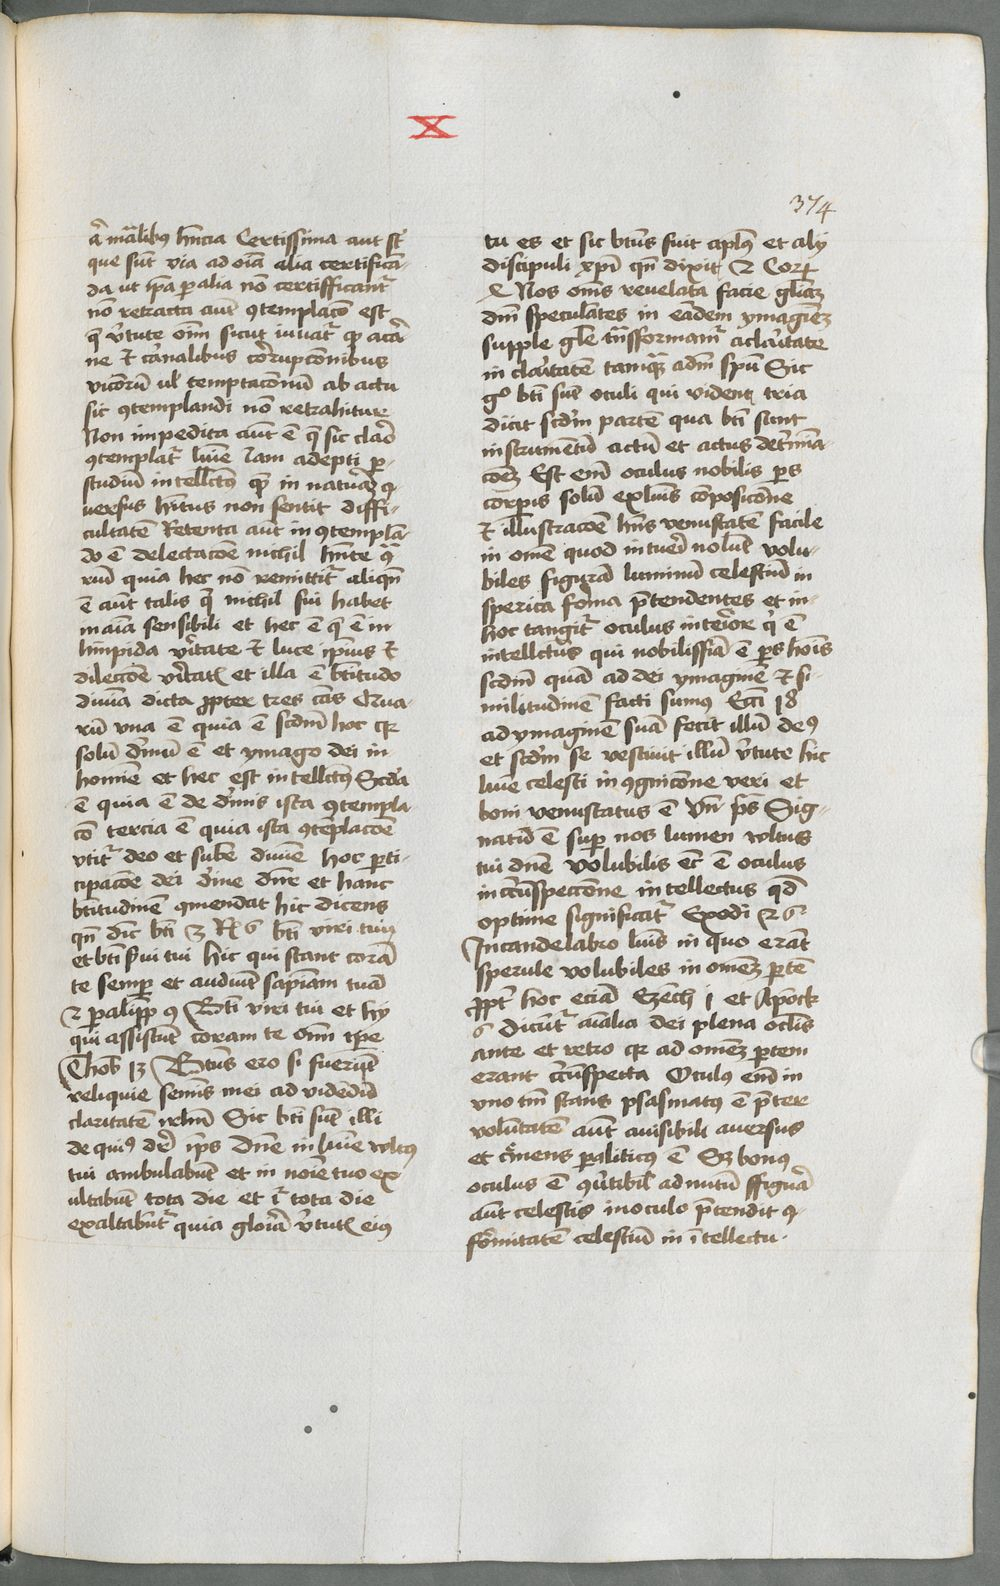 X
374
a͞ mãlibus hñcia Certissima aut sũt
que sũt via ad oĩa alia certificã-
da ut ip̃a p alia nõ certifficant᷑
nõ retracta aut̃ ꝯtemplacõ est
q̃ v̓tute oĩm sicut iuvat᷑
ne et carnalibus corrupcõnibus
vicõrũ ul̓ temptacõnũ ab actu
sic ꝯtemplandi nõ retrahitur
Non impedita aut̃ ẽ q̃ sic
ꝯtemplat᷑ luĩe Iam adepti p-
studium intellctꝰ q̃ in natura
versus hĩtus non sentit diffi-
cultatẽ Retenta aut̃ in ꝯtempla-
dõ ẽ delectacõe nichil hñte
rium quia hec nõ remittit᷑ aliqñ
ẽ aut̃ talis q̃ nichil sui habet
mãia sensibili et hec ẽ q̃ ẽ in
limpida v̓itate et luce ip̃ius et
dilecõe v̓itatis et illa ẽ btĩtudo
divina dicta ꝓpter tres cãs Qua-
rũ una ẽ quia ẽ scdm̃ hoc qꝫ
solũ divinũ ẽ et ymago dei in
homĩe et hec est intellctꝰ Scd̓a
ẽ quia ẽ de divinis ista ꝯtempla-
cõ tercia ẽ quia ista ꝯtẽplacõe
utit᷑ deo et sube divine hoc p̱ti-
cipacõe dei divine dñr et hanc
btĩtudinẽ ꝯmendat hic dicens
qñ dic̃ bti 3 Rͤ 6 bti viri tui
et btĩ s̓vi tui hic qui stant corã
te semp̱ et audiunt sap̃iam tuã
2 p̱alip̃ 9 Bti viri tui et hij
qui assistũt coram te omĩ tp̱e
Thob 13 Btũs ero si fuerint
reliquie semĩs mei ad videndũ
claritatẽ irl̃m Sic bti sũt illi
de quiꝰ dr̃ ip̃s Dñe in luĩe vultꝰ
tui ambulabũt et in noĩe tuo ex-
ultabũt tota die et i᷑ tota die
exaltabũt᷑ quia gloria v̓tut̃ eius
tu es et sic btũs fuit aplũs et alij
discipuli xp̃i qñ dixit 2 Cor
Nos om̃s revelata facie gliã
dñi speculãtes in eãdem ymaginẽ
supple gl̃e t̃nsformam᷑ a claritate
in claritatẽ tamqꝫ a dñi spũ Sic
gͦ bti sũt oculi qui vident tria
dicit scdm̃ partẽ qua bti sunt
instrumentũ actũ et actus det̓mĩa-
cõeꝫ Est em̃ oculus nobilis p̱s
corp̱is solũ ex luĩs cõposicõne
et illustracõe hñs venustatẽ facile
in omẽ quod intueri voluit volu-
biles figurã luminũ celestiũ in
sperica forma p̃tendentes et in-
hoc tangit᷑ oculus int̓iore q̃ ẽ
intellctus qui nobilissĩa ẽ p̱s hoĩs
scdm̃ quã ad dei ymaginẽ et si-
militudinẽ facti sumus Ecci 18
ad ymaginẽ suã fecit illũ deꝰ
et scdm̃ se vestivit illũ v̓tute hic
luĩe celesti in ꝯgnicõne veri et
boni venustatus ẽ Vñ ps̃ Sig-
natũ ẽ sup̱ nos lumen vultus
tui dñe volubilis ec̃ ẽ oculus
in circũspeccõne intellectus qd̃
optime significat᷑ Exodi 26
In candelabro luĩs in quo erãt
sperule volubiles in om̃eꝫ p̱tẽ
ꝓpt̓ hoc eciã Ezech 1 et Apock
6 dicũt᷑ aĩalia dei plena oclĩs
ante et retro qꝫ ad om̃eꝫ p̱tem
erant circũspecta Oculꝰ em̃ in
vno tm̃ stans psasmatꝰ ẽ p̃ter
volũtatẽ aut̃ avisibili aversus
et
tremens p̱aliticus ẽ Sꝫ bonꝰ
oculus ẽ ꝯv̓tibil̓ ad nutũ ffigurã
aut̃ celestis in oculo p̃tendit ꝯ-
formitatẽ celestiũ in ĩtellectu.